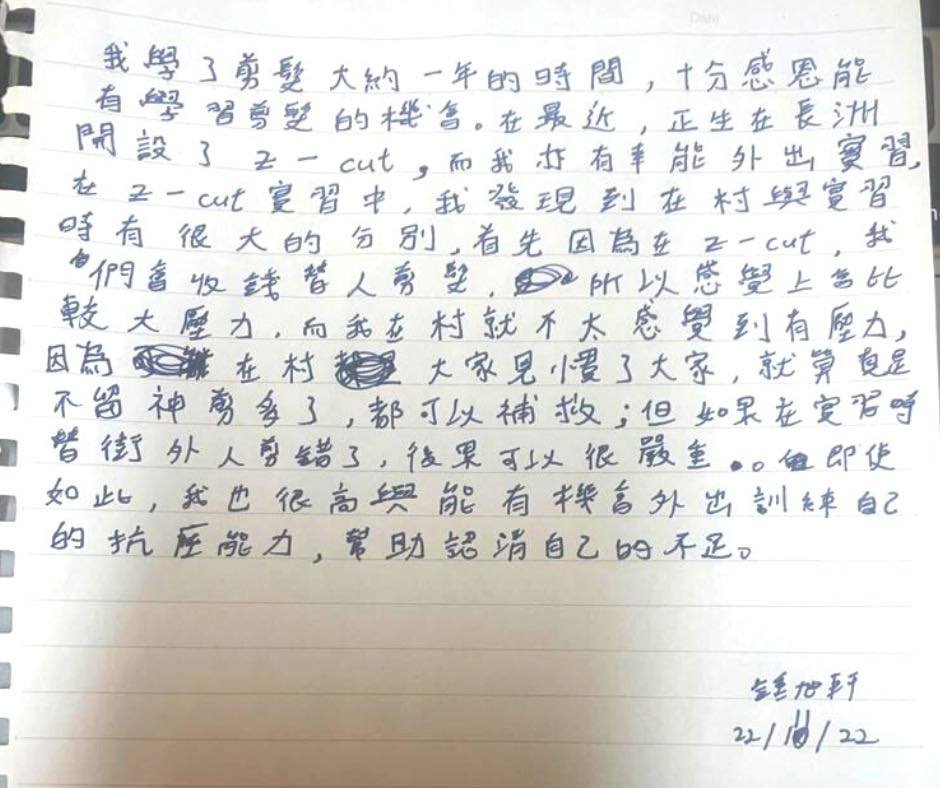 Date
我學了剪髮大約一年的時間，十分感恩能
有學習剪髮的機會。在最近，正生在長洲
開設了 Z-cut，而我亦有幸能外出實習，
在 Z-cut 實習中，我發現到在村與實習
時有很大的分別，首先因為在 Z-cut，我
們會收錢替人剪髮，所以感覺上會比
較大壓力，而我在村就不太感覺到有壓力，
因為在村大家見慣了大家，就算真是
不留神剪多了，都可以補救；但如果在實習時
替街外人剪錯了，後果可以很嚴重。即使
如此，我也很高興能有機會外出訓練自己
的抗壓能力，幫助認清自己的不足。
22/ /22